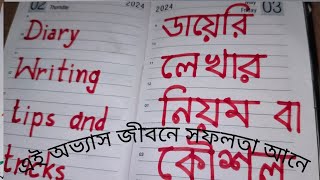 02
Thursday
2024
2024
03
Diary
Writing
tips and
tricks
ডায়েরি
লেখার
নিয়ম বা
কৌশল
এই অভ্যাস জীবনে সফলতা আনে